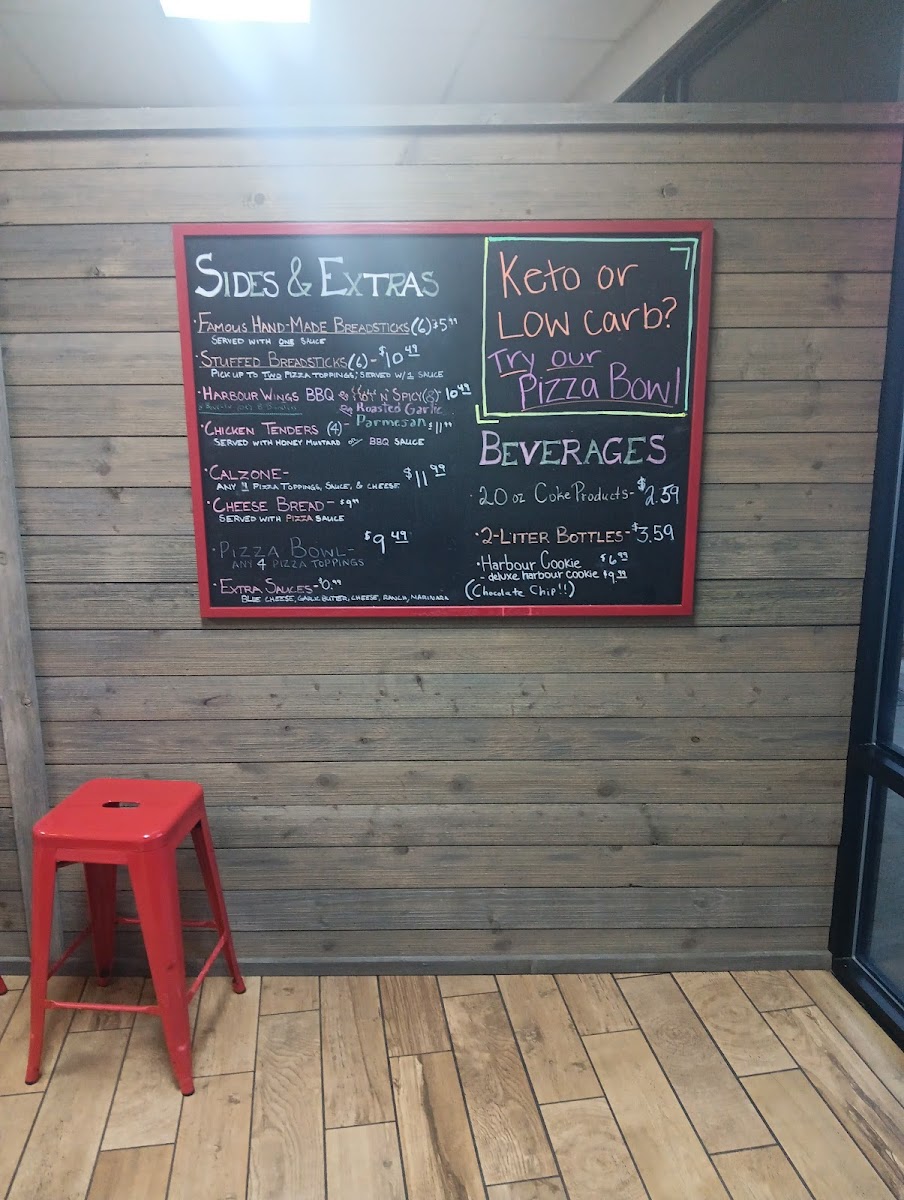 SIDES & EXTRAS
·FAMOUS HAND-MADE BREADSTICKS (6) $5.99
SERVED WITH ONE SAUCE
·STUFFED BREADSTICKS (6) - $10.49
PICK UP TO TWO PIZZA TOPPINGS; SERVED W/ 1 SAUCE
·HARBOUR WINGS BBQ HOT N' SPICY (8) 10.49
Roasted Garlic
Parmesan
·CHICKEN TENDERS (4) - $11.99
SERVED WITH HONEY MUSTARD or BBQ SAUCE
·CALZONE- $11.99
ANY 4 PIZZA TOPPINGS, SAUCE, & CHEESE
·CHEESE BREAD - $9.99
SERVED WITH PIZZA SAUCE
·PIZZA BOWL- $9.49
ANY 4 PIZZA TOPPINGS
·EXTRA SAUCES - $0.99
BLUE CHEESE, GARLIC BUTTER, CHEESE, RANCH, MARINARA
Keto or
Low carb?
Try our
Pizza Bowl
BEVERAGES
·20 oz Coke Products- $2.59
·2-LITER BOTTLES- $3.59
·Harbour Cookie $6.99
- deluxe harbour cookie $9.99
(Chocolate Chip!!)